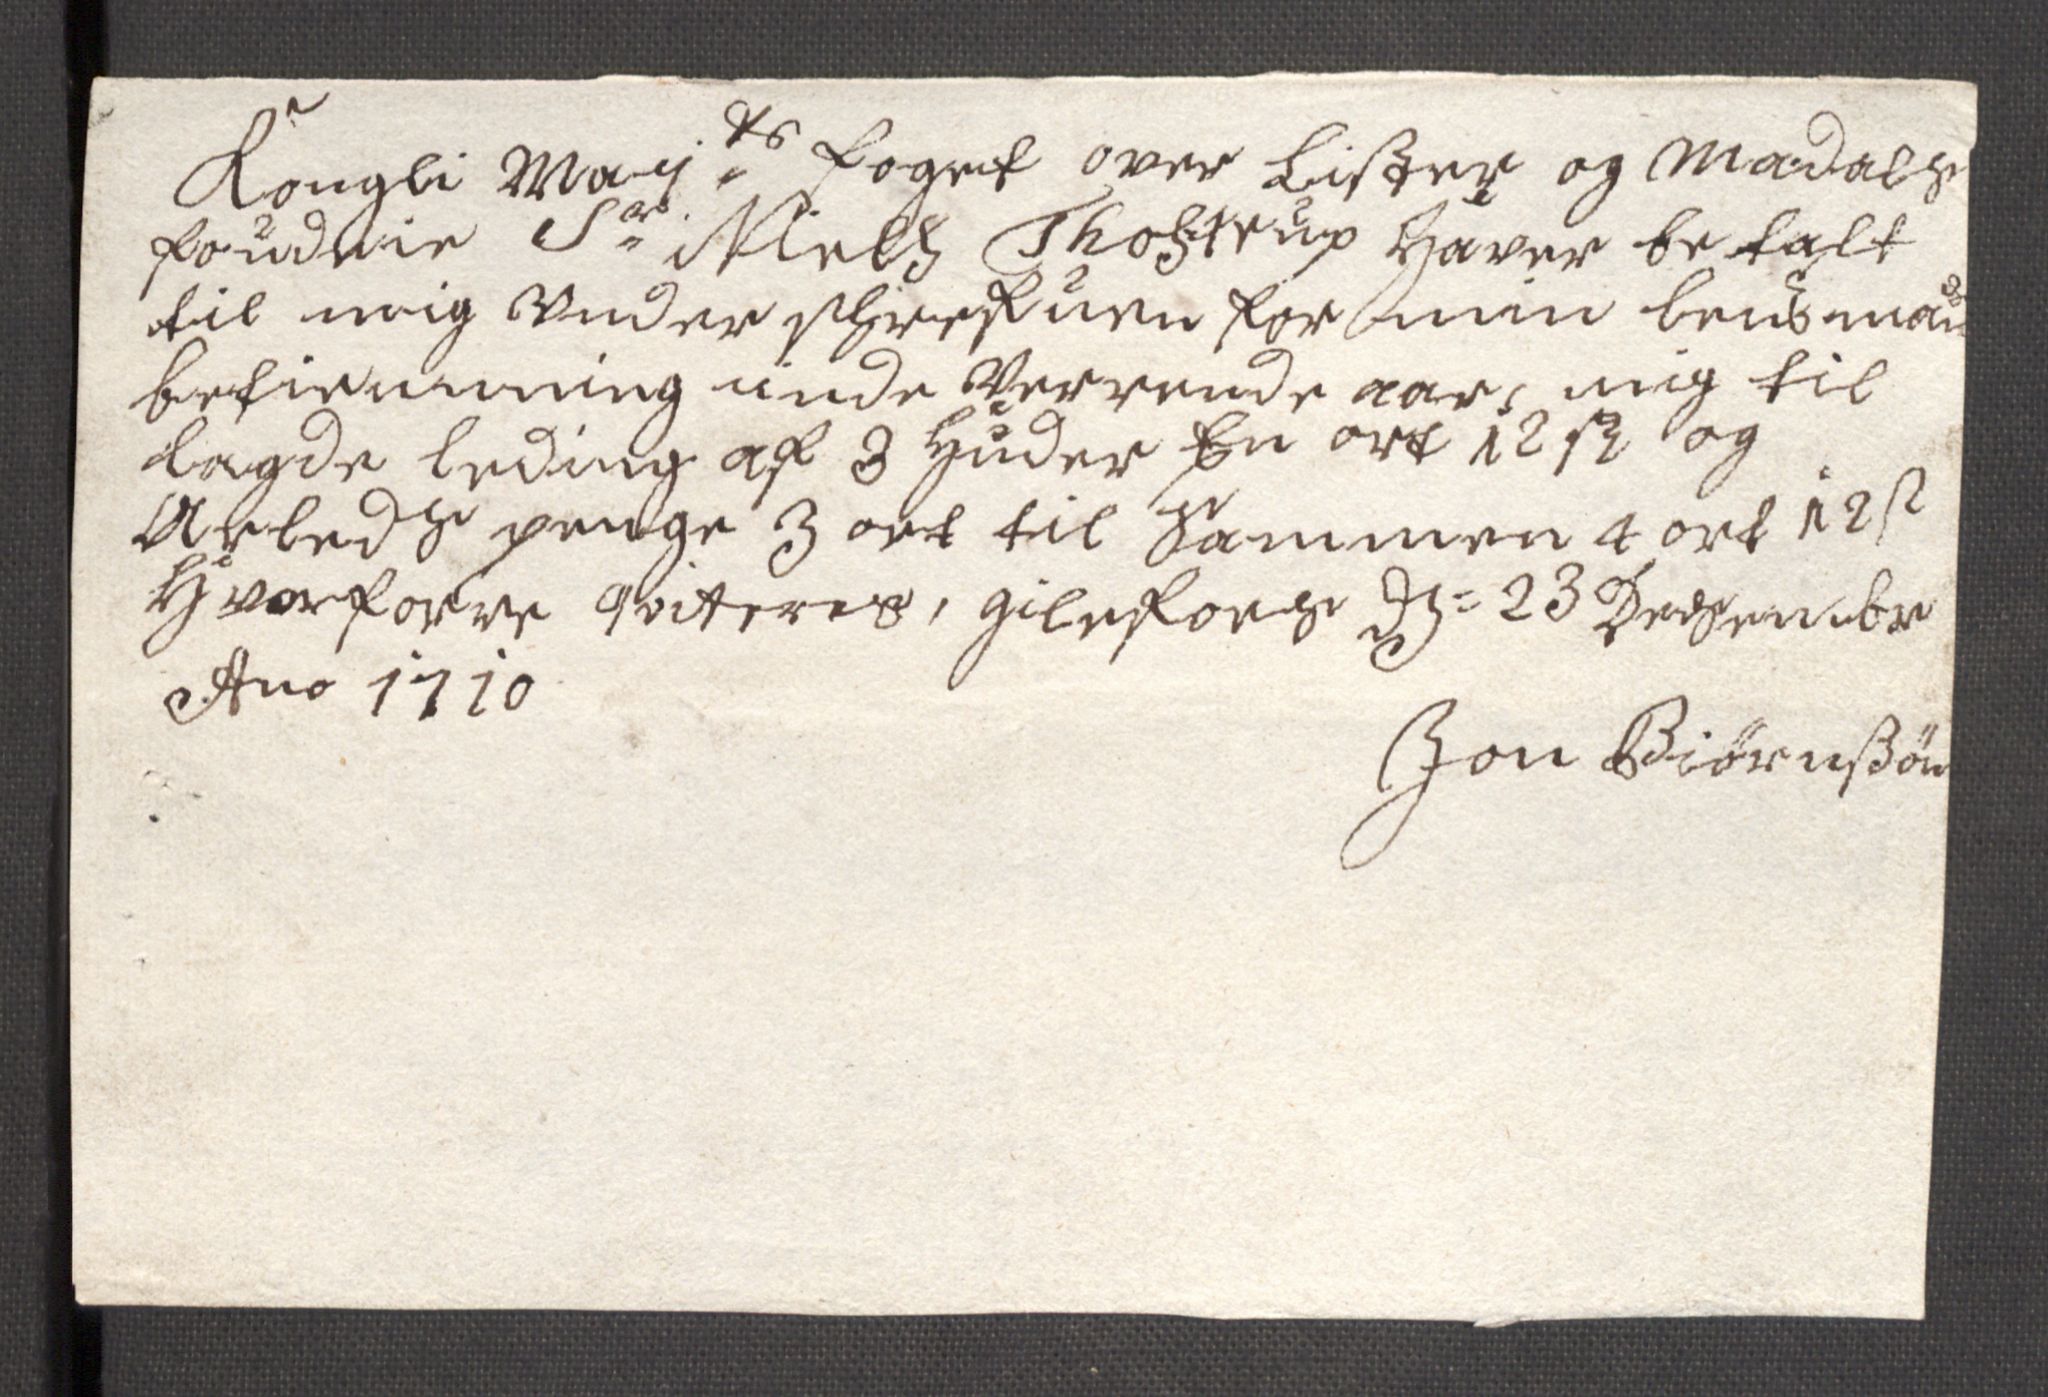 Kongli Mayts fogt over Lister og Madals
foudrie Sr Nielß Thoßtrup Haver be talt
til mig Under schrefuen for min lensmands
betienning inde Verrende aar, mig til
lagde leding af 3 Huder En ort 12 sß og
Arleds penge 3 ort til Sammen 4 ort 12 ß
Hvorforre qviteres, gilefors dß = 23 Desember
Ano 1710
Jon Biörnßön